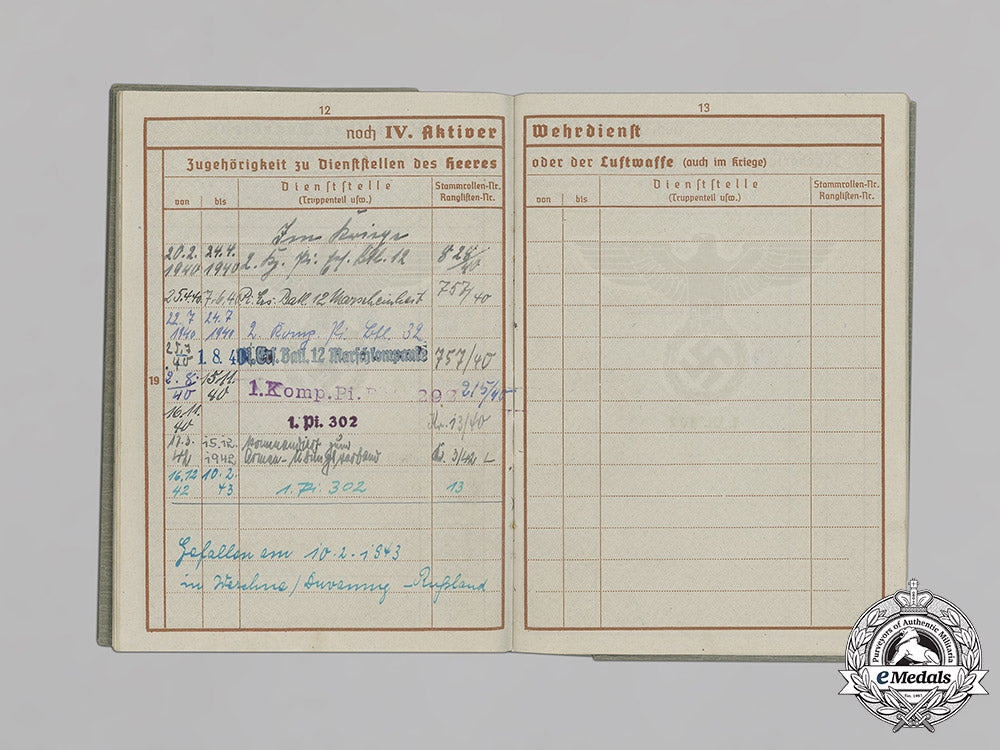 12
noch IV. Aktiver
Zugehörigkeit zu Dienststellen des Heeres
von bis
Dienststelle
(Truppenteil usw.)
Stammrollen-Nr.
Ranglisten-Nr.
Im Kriege
20.2. 1940 24.4. 1940 2. Kp. Pi. Ers. Btl. 12 828/40
25.4.40 7.6.40 Pi. Ers. Batl. 12 Marscheinheit 757/40
22.7 1940 24.7 1940 2. Komp. Pi. Btl. 32
25.7 40 1.8.40 Ers. Batl. 12 Marschkompanie 757/40
19
2.8. 40 15.11. 40 1. Komp. Pi. 292 215/40
16.11. 40 1. Pi. 302 Kr. 13/40
17.3. 42 15.12. 1942 Kommandiert zum
Armee- Kr. 3/42
16.12 42 10.2. 43 1. Pi. 302 13
Gefallen am 10.2.1943
in - Rußland
13
Wehrdienst
oder der Luftwaffe (auch im Kriege)
von bis
Dienststelle
(Truppenteil usw.)
Stammrollen-Nr.
Ranglisten-Nr.
Purveyors of Authentic Militaria
eMedals